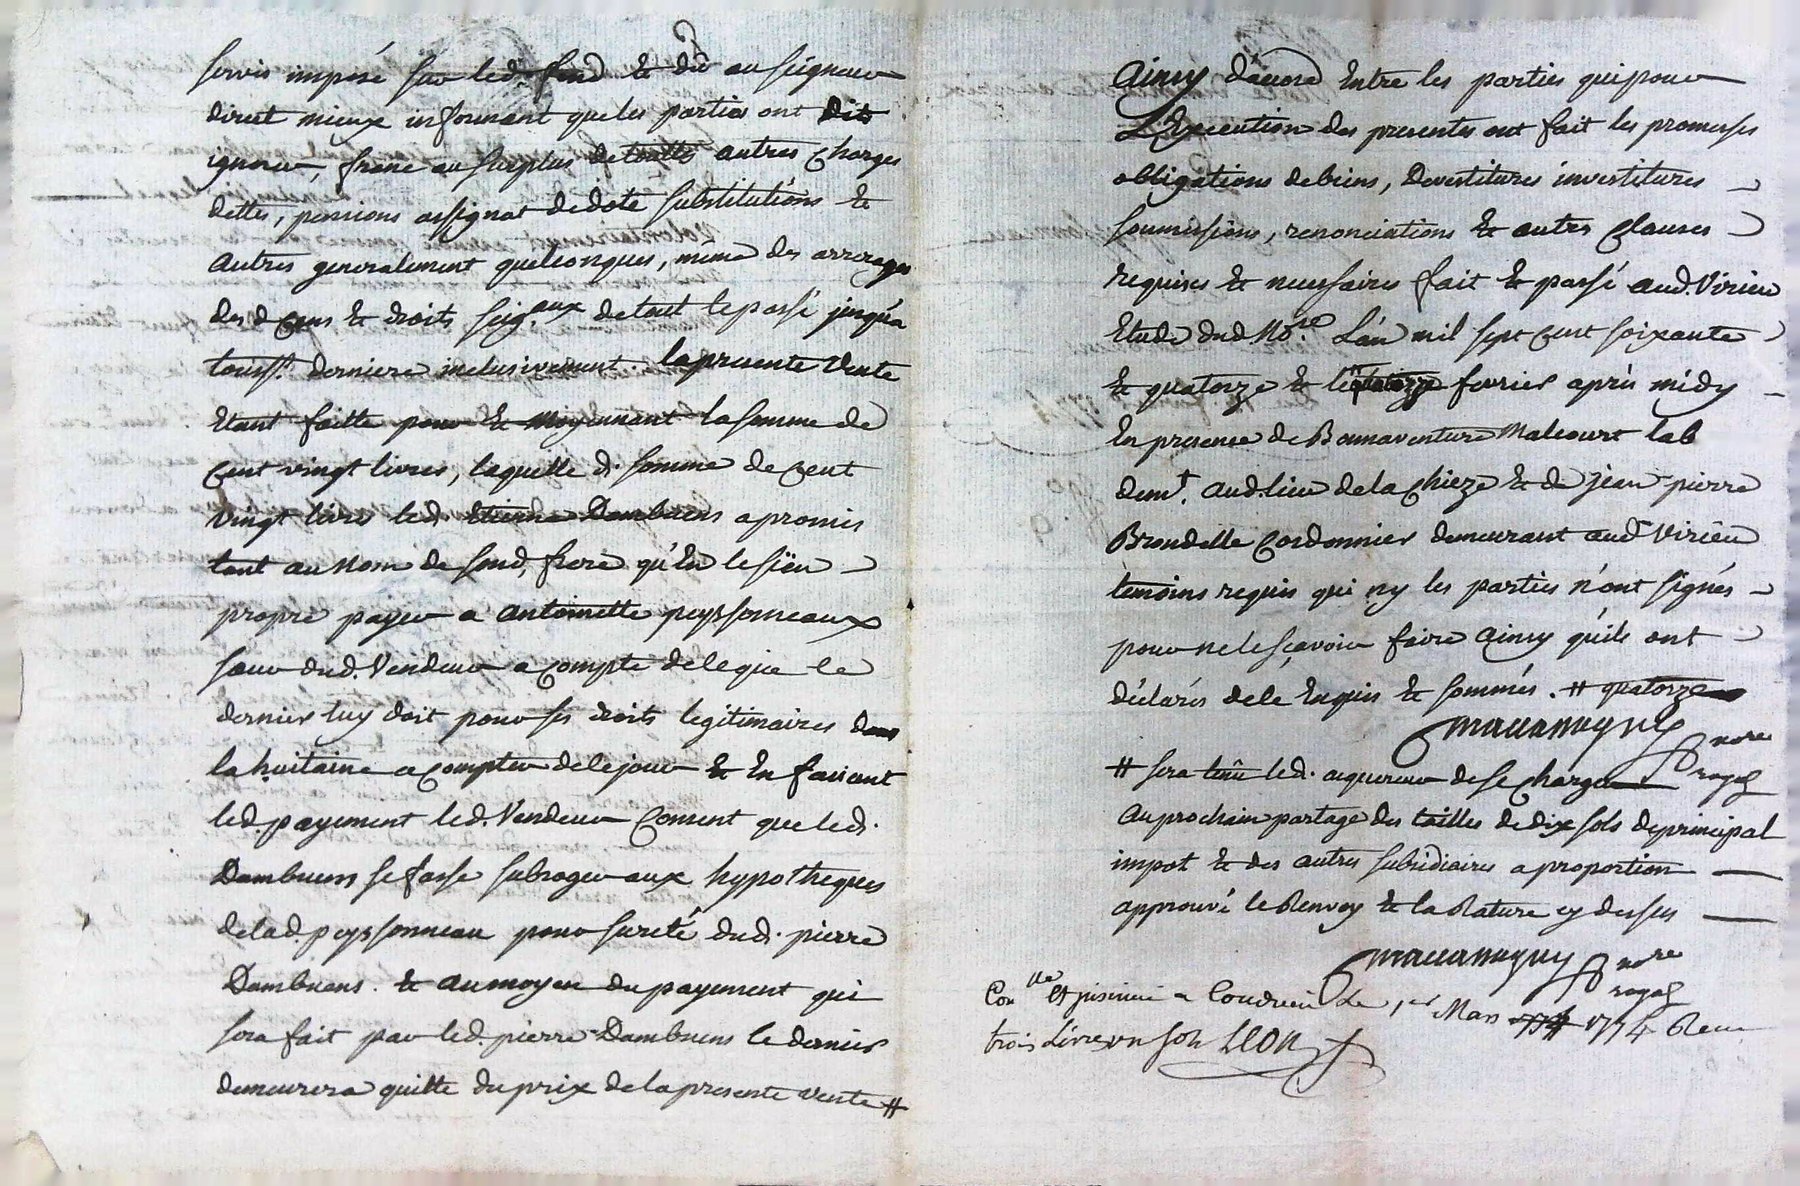 servis imposé sur led. fond & dû au seigneur
direct mieux informant que les parties ont dits
ignorer, franc au surplus de toutte autres charges
dettes, pensions assignat de dote substitutions &
autres generalement quelconques, même des arrerages
des d cens & droits seig.aux de tout le passé jusqu'a
touss.t derniere inclusivement. la presente vente
Etant faitte pour & moyennant la somme de
cent vingt livres, laquelle d. somme de cent
vingt livre led. Etienne Dambuens a promis
tant au nom de sond, frere qu'En le sien
propre payer a antoinette peyssonneaux
sœur dud. Vendeur a compte de le que le
dernier luy doit pour ses droits legitimaires dans
la huitaine a compter de le jour & En faisant
led. payement led. Vendeur Consent que led.
Dambuens se fasse subroger aux hypotheques
de lad. peyssonneau pour sureté dud. pierre
Dambuens. & au moyen du payement qui
sera fait par led. pierre Dambuens le dernier
demeurera quitte du prix de la presente vente #
Ainsy d'accord Entre les parties qui pour
L'Execution des presentes ont fait les promesses
obligations de biens, Devestitures investitures
soumissions, renonciations & autres Clauses
requises & necessaires fait & passé aud. Virieu
Etude dud No.re L'an mil sept cent soixante
& quatorze & le # fevrier après midy
En presence de Bonnaventure Malcourt lab
dem.t aud. lieu de la Chieze & de jean pierre
Brondelle Cordonnier demeurant aud Virieu
temoins requis qui ny les parties n'ont signés
pour ne le sçavoir faire Ainsy qu'ils ont
déclarés de le Enquis & sommés. # quatorze
nore
royal
# sera tenu led. acquereur de se Charger
Au prochain partage des tailles de dix sols de principal
impot & des autres subsidiaires a proportion
approuvé le Renvoy & la Rature cy dessus
nore
royal
Con.lle et jnsinué a Condrieu Le 1.er Mars 1774 Recu
trois Livres un sol LEON